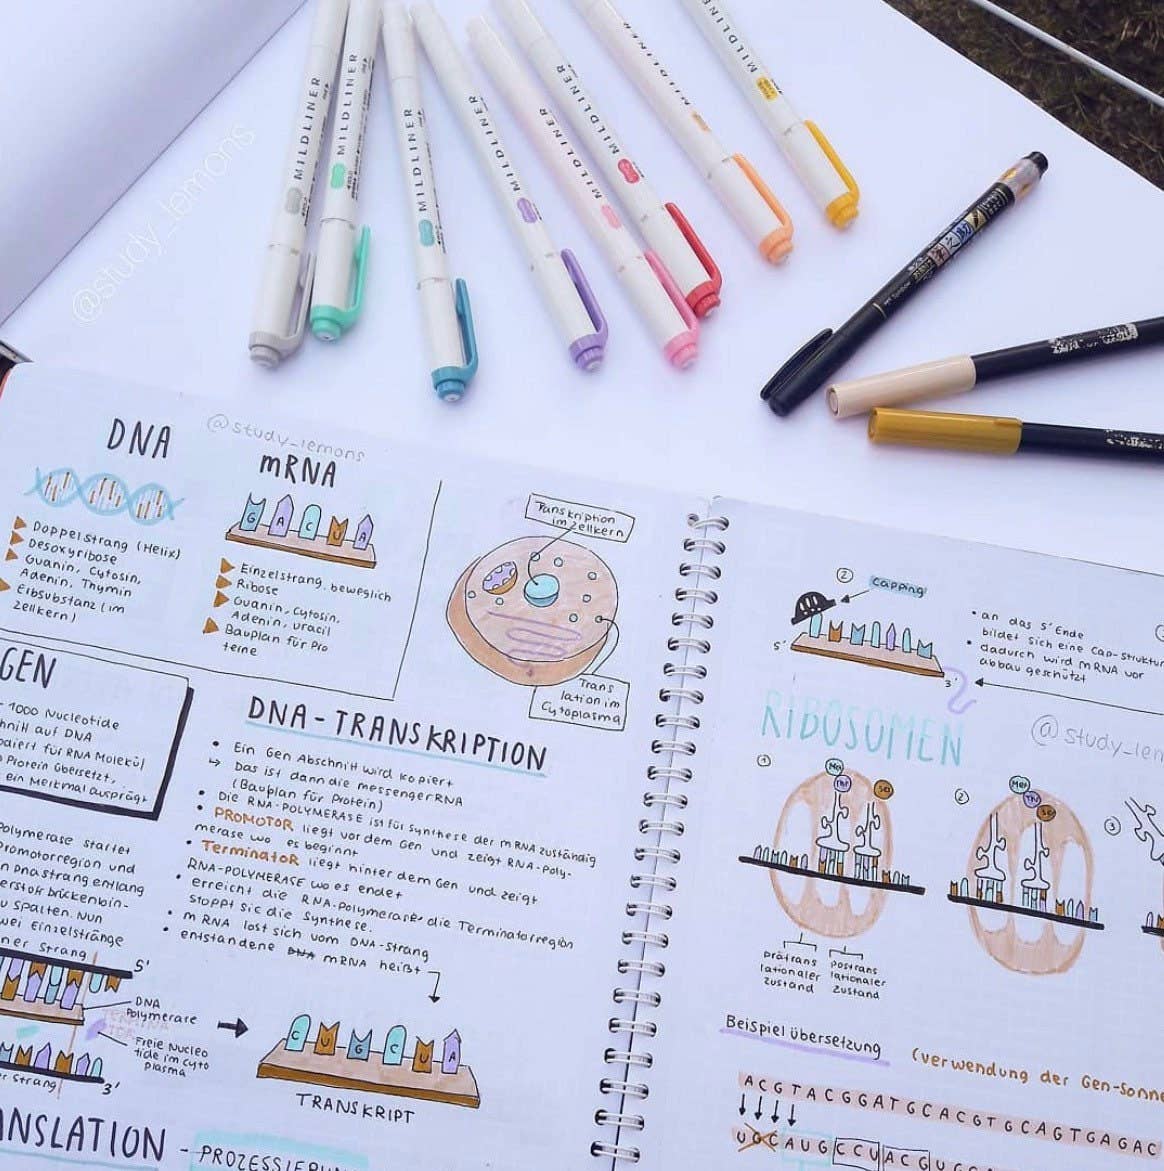 @study_lemons
MILDLINER
MILDLINER
MILDLINER
MILDLINER
MILDLINER
MILDLINER
MILDLINER
MILDLINER
DNA
Doppelstrang (Helix)
Desoxyribose
Guanin, Cytosin,
Adenin, Thymin
Erbsubstanz (im
Zellkern)
@study_lemons
mRNA
G A C U A
Einzelstrang, beweglich
Ribose
Guanin, Cytosin,
Adenin, Uracil
Bauplan für Pro
teine
Transkription
im Zellkern
Trans
lation im
Cytoplasma
GEN
1000 Nucleotide
hnitt auf DNA
odiert für RNA Molekül
Protein übersetzt,
ein Merkmal ausprägt
DNA-TRANSKRIPTION
• Ein Gen Abschnitt wird kopiert
↳ Das ist dann die messengerRNA
(Bauplan für Protein)
• Die RNA-POLYMERASE ist für Synthese der mRNA zuständig
• PROMOTOR liegt vor dem Gen und zeigt RNA-Poly-
merase wo es beginnt
• Terminator liegt hinter dem Gen und zeigt
RNA-POLYMERASE wo es endet
• erreicht die RNA-Polymerase die Terminatorregion
stoppt sie die Synthese.
• mRNA löst sich vom DNA-strang
• entstandene DNA mRNA heißt
Polymerase startet
romotorregion und
n DNA strang entlang
erstoff brückenbin-
u spalten. Nun
wei Einzelstränge
ner Strang
5'
DNA
Polymerase
Freie Nucleo
tide im Cyto
plasma
er Strang
3'
C U G C U A
TRANSKRIPT
ANSLATION - PROZESSIERUN
② capping
5'
3'
• an das 5' Ende
bildet sich eine Cap-Struktur
• dadurch wird mRNA vor
abbau geschützt
RIBOSOMEN
@study_lem
①
Met
②
Met
③
prätrans
lationaler
zustand
postrans
lationaler
zustand
Beispiel übersetzung
(verwendung der Gen-Sonne
ACGTACGGATGCACGTGCAGTGAGAC
UGCAUGCCUACGU